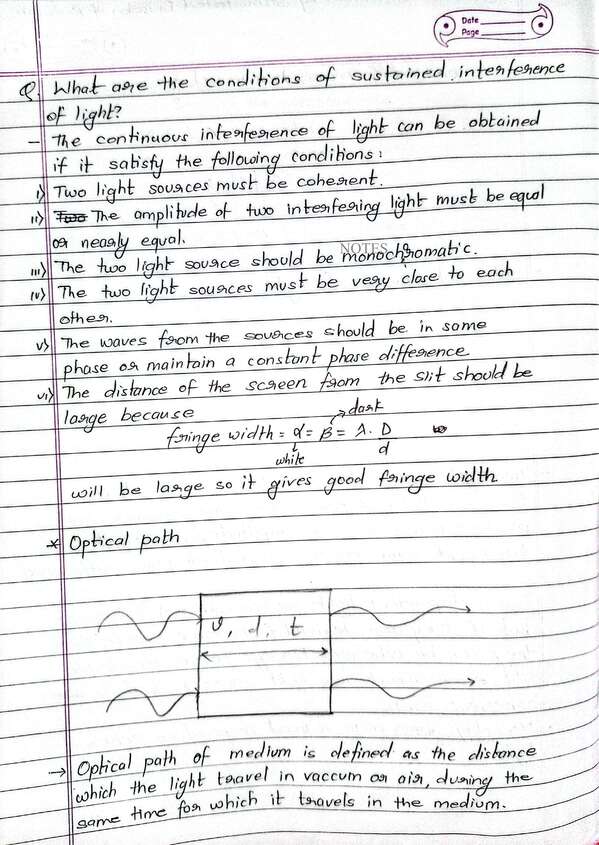 Date
Page
Q What are the conditions of sustained interference
of light?
- The continuous interference of light can be obtained
if it satisfy the following conditions :
i) Two light sources must be coherent.
ii) Two The amplitude of two interfering light must be equal
or nearly equal.
NOTES
iii) The two light source should be monochromatic.
iv) The two light sources must be very close to each
other.
v) The waves from the sources should be in same
phase or maintain a constant phase difference
vi) The distance of the screen from the slit should be
large because
dark
fringe width = α = β = λ. D
d
white
will be large so it gives good fringe width
* Optical path
v, d, t
→ Optical path of medium is defined as the distance
which the light travel in vaccum or air, during the
same time for which it travels in the medium.